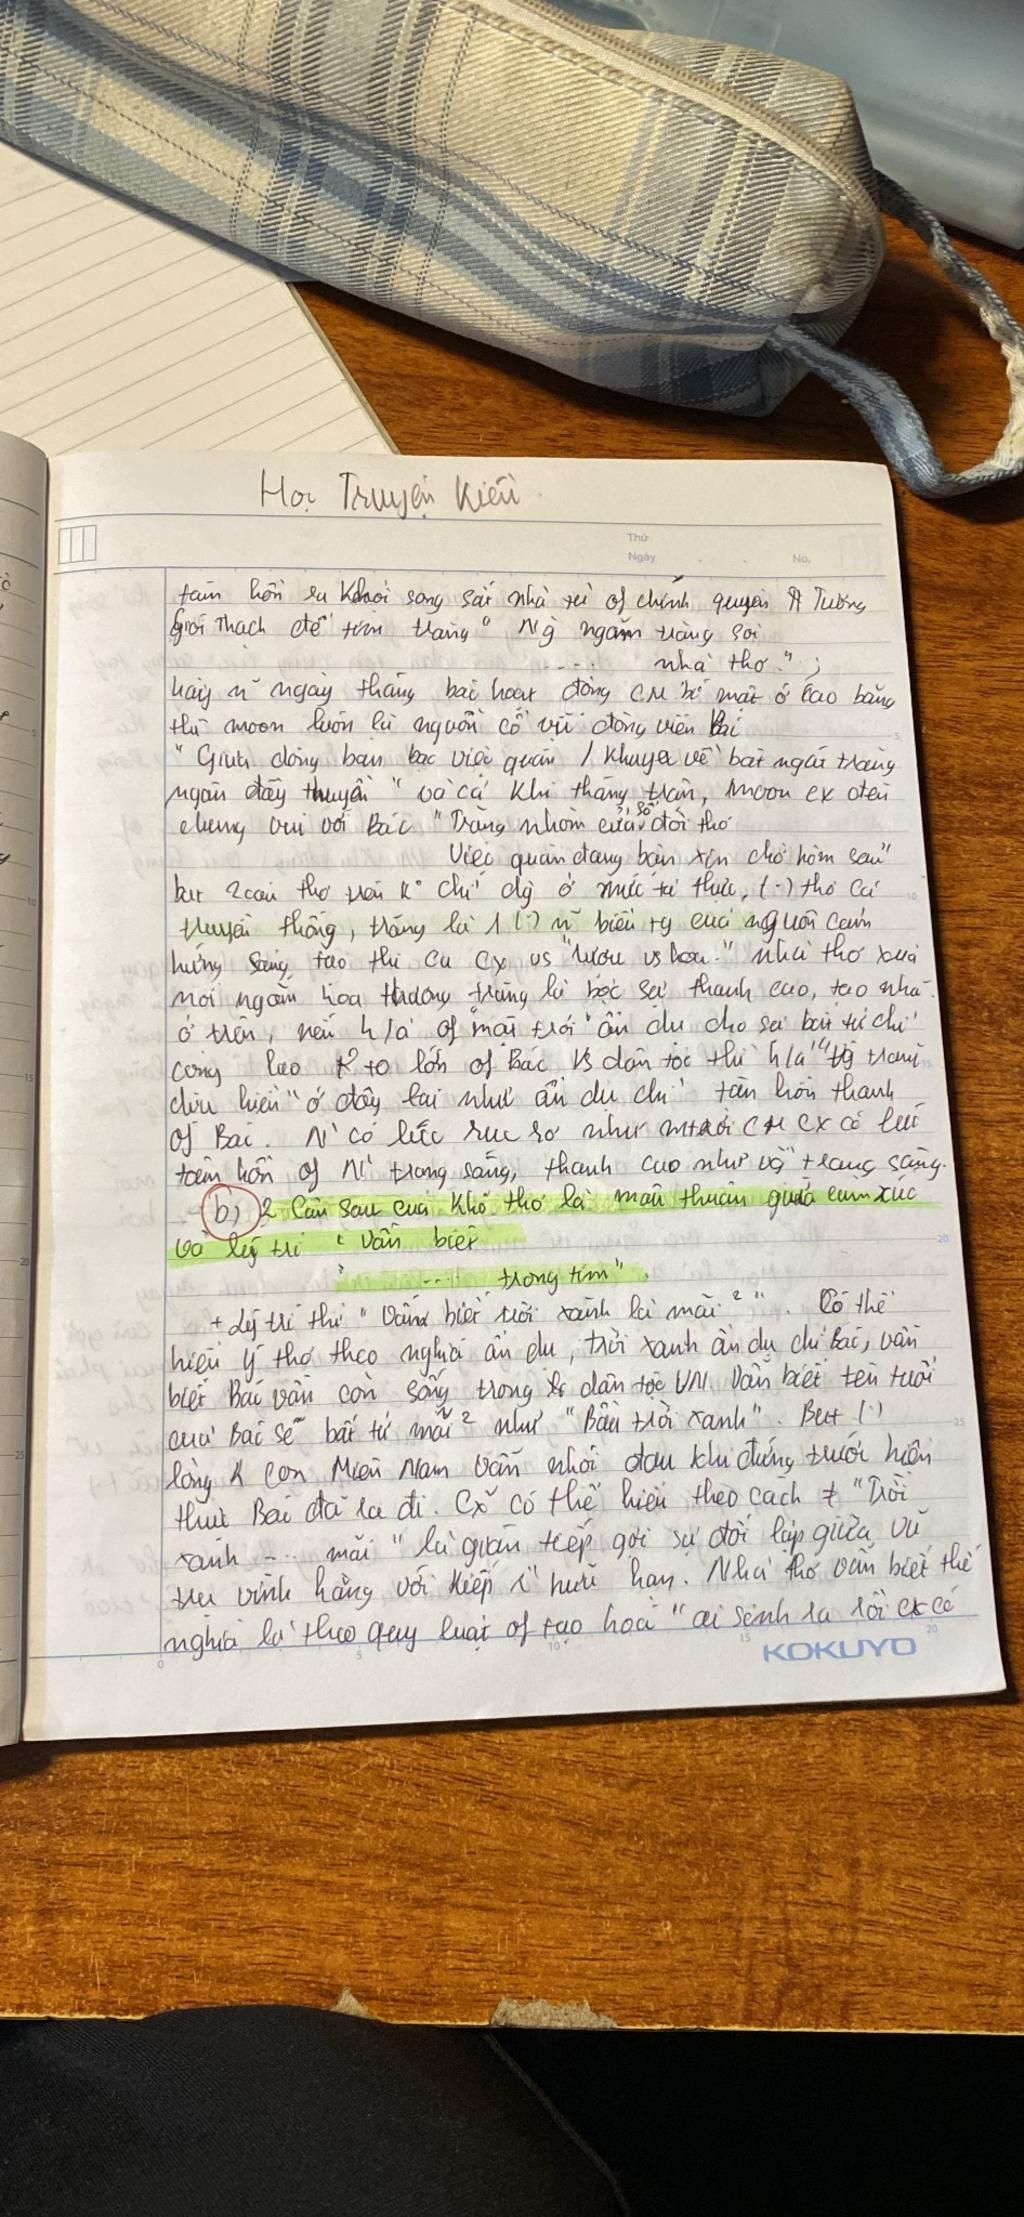 Học Truyện Kiều
Thứ
Ngày . . No.
tâm hồn ra khỏi song sắt nhà tù of chính quyền Tưởng
Giới Thạch để tìm trăng " Ng ngắm trăng soi
.... nhà thơ." ;
hay n~ ngày tháng bác hoạt động CM bí mật ở Cao bằng
thì moon luôn là nguồn cổ vũ động viên Bác
" Giữa dòng bàn bạc việc quân / Khuya về bát ngát trăng
ngân đầy thuyền " và cả khi thắng trận, moon cx đến
chung vui với Bác "Trăng nhòm cửa sổ đòi thơ
Việc quân đang bận xin chờ hôm sau"
but 2 câu thơ trên k° chỉ dg ở mức tả thực, (.) thơ ca
truyền thống, trăng là 1 (.) n~ biểu tg của nguồn cảm
hứng sáng tạo thi ca cx vs "rượu vs hoa." nhà thơ xưa
nói ngắm hoa thưởng trăng là bộc sự thanh cao, tao nhã.
ở trên, nếu h/a of "mặt trời" ẩn dụ cho sự bất tử chỉ
công lao to lớn of Bác vs dân tộc thì h/a "vg trăng
dịu hiền" ở đây lại như ẩn dụ chỉ tâm hồn thanh
of Bác. N' có lúc rực rỡ như mtrời CM cx có lúc
tâm hồn of N' trong sáng, thanh cao như vg trăng sáng.
b) 2 Câu sau của khổ thơ là mâu thuẫn giữa cảm xúc
và lý trí " Vẫn biết
" .... trong tim".
+ Lý trí thì " Vẫn biết trời xanh là mãi ² ". Có thể
hiểu ý thơ theo nghĩa ẩn dụ, trời xanh ẩn dụ chỉ Bác, vẫn
biết Bác vẫn còn sống trong dân tộc VN. Vẫn biết tên tuổi
của Bác sẽ bất tử mãi ² như "Bầu trời xanh". But (.)
lòng con Miền Nam vẫn nhói đau khi đứng trước hiện
thực Bác đã ra đi. Cx có thể hiểu theo cách ≠ "Trời
xanh .... mãi " là gián tiếp gợi sự đối lập giữa vũ
trụ vĩnh hằng với kiếp hữu hạn. Nhà thơ vẫn biết thế
nghĩa là theo quy luật of tạo hoá " ai sinh ra rồi cx có
KOKUYO